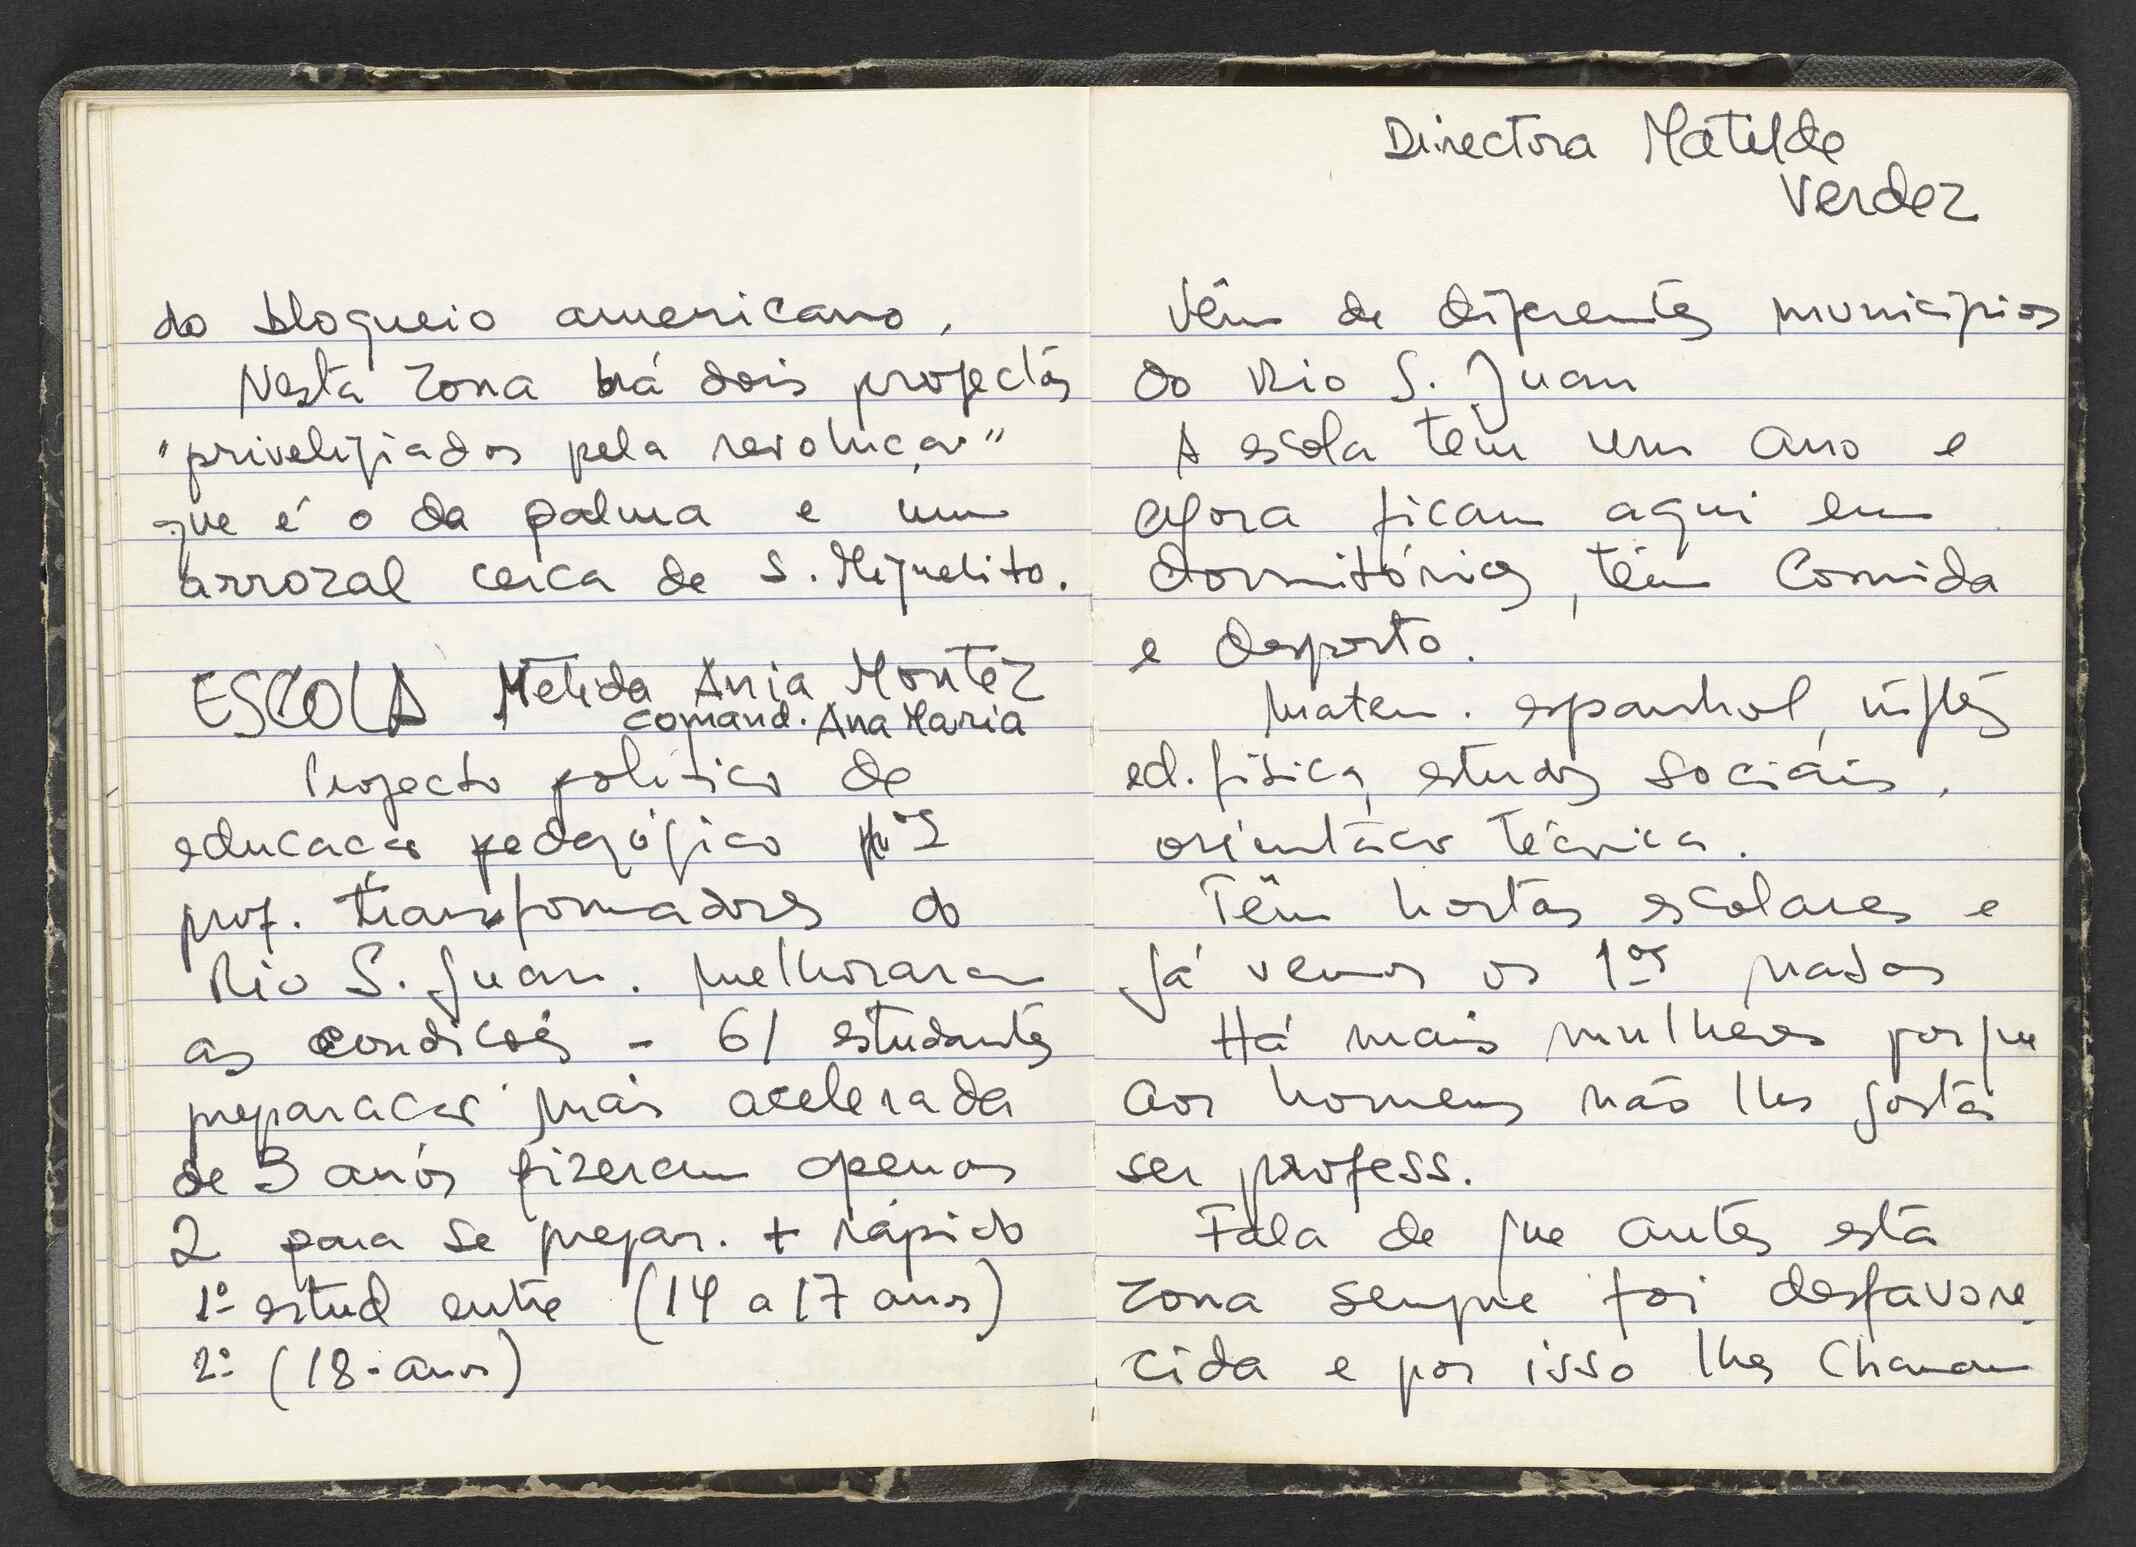 do bloqueio americano.
Nesta zona há dois projectos
"priveligiados pela revolução"
que é o da palma e um
arrozal cerca de S. Miguelito.
ESCOLA Melida Ania Montez
comand. Ana Maria
Projecto politico de
educação pedagógico
prof. transformadores do
Rio S. Juan. Melhoraram
as condições - 61 estudantes
preparação mais acelerada
de 3 anos fizeram apenas
2 para se prepar. + rápido
1º estud entre (14 a 17 anos)
2º (18-anos)
Directora Matilde
Verdez
Vêm de diferentes municípios
do Rio S. Juan
A escola tem um ano e
agora ficam aqui em
dormitórios, têm comida
e desporto.
Matem. espanhol, inglês
ed. física, estudos sociais,
orientação técnica.
Têm hortas escolares e
já vemos os 1os
Há mais mulheres porque
aos homens não lhes gosta
ser profess.
Fala de que antes esta
zona sempre foi desfavore
cida e por isso lhes chamam